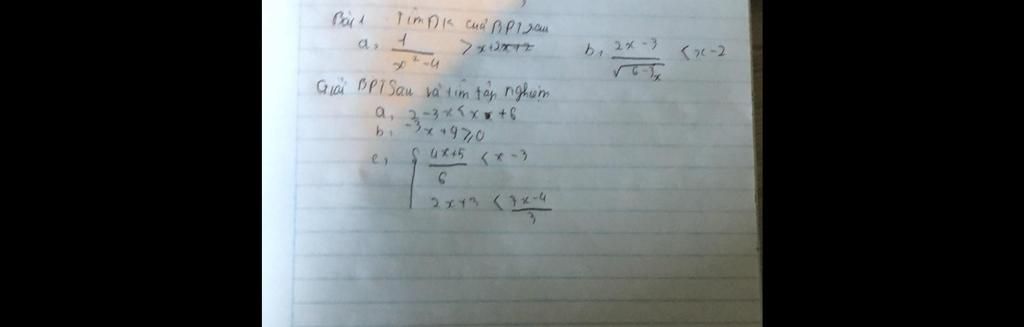 Bài 1 Tìm ĐK của BPT sau
a, 1/(x² - 4) > x + 2 b, (2x - 3)/√(6 - 3x) < x - 2
Giải BPT Sau và tìm tập nghiệm
a, 2 - 3x < x + 6
b, -3x + 9 ≥ 0
c, { (4x + 5)/6 < x - 3
2x + 3 < (7x - 4)/3